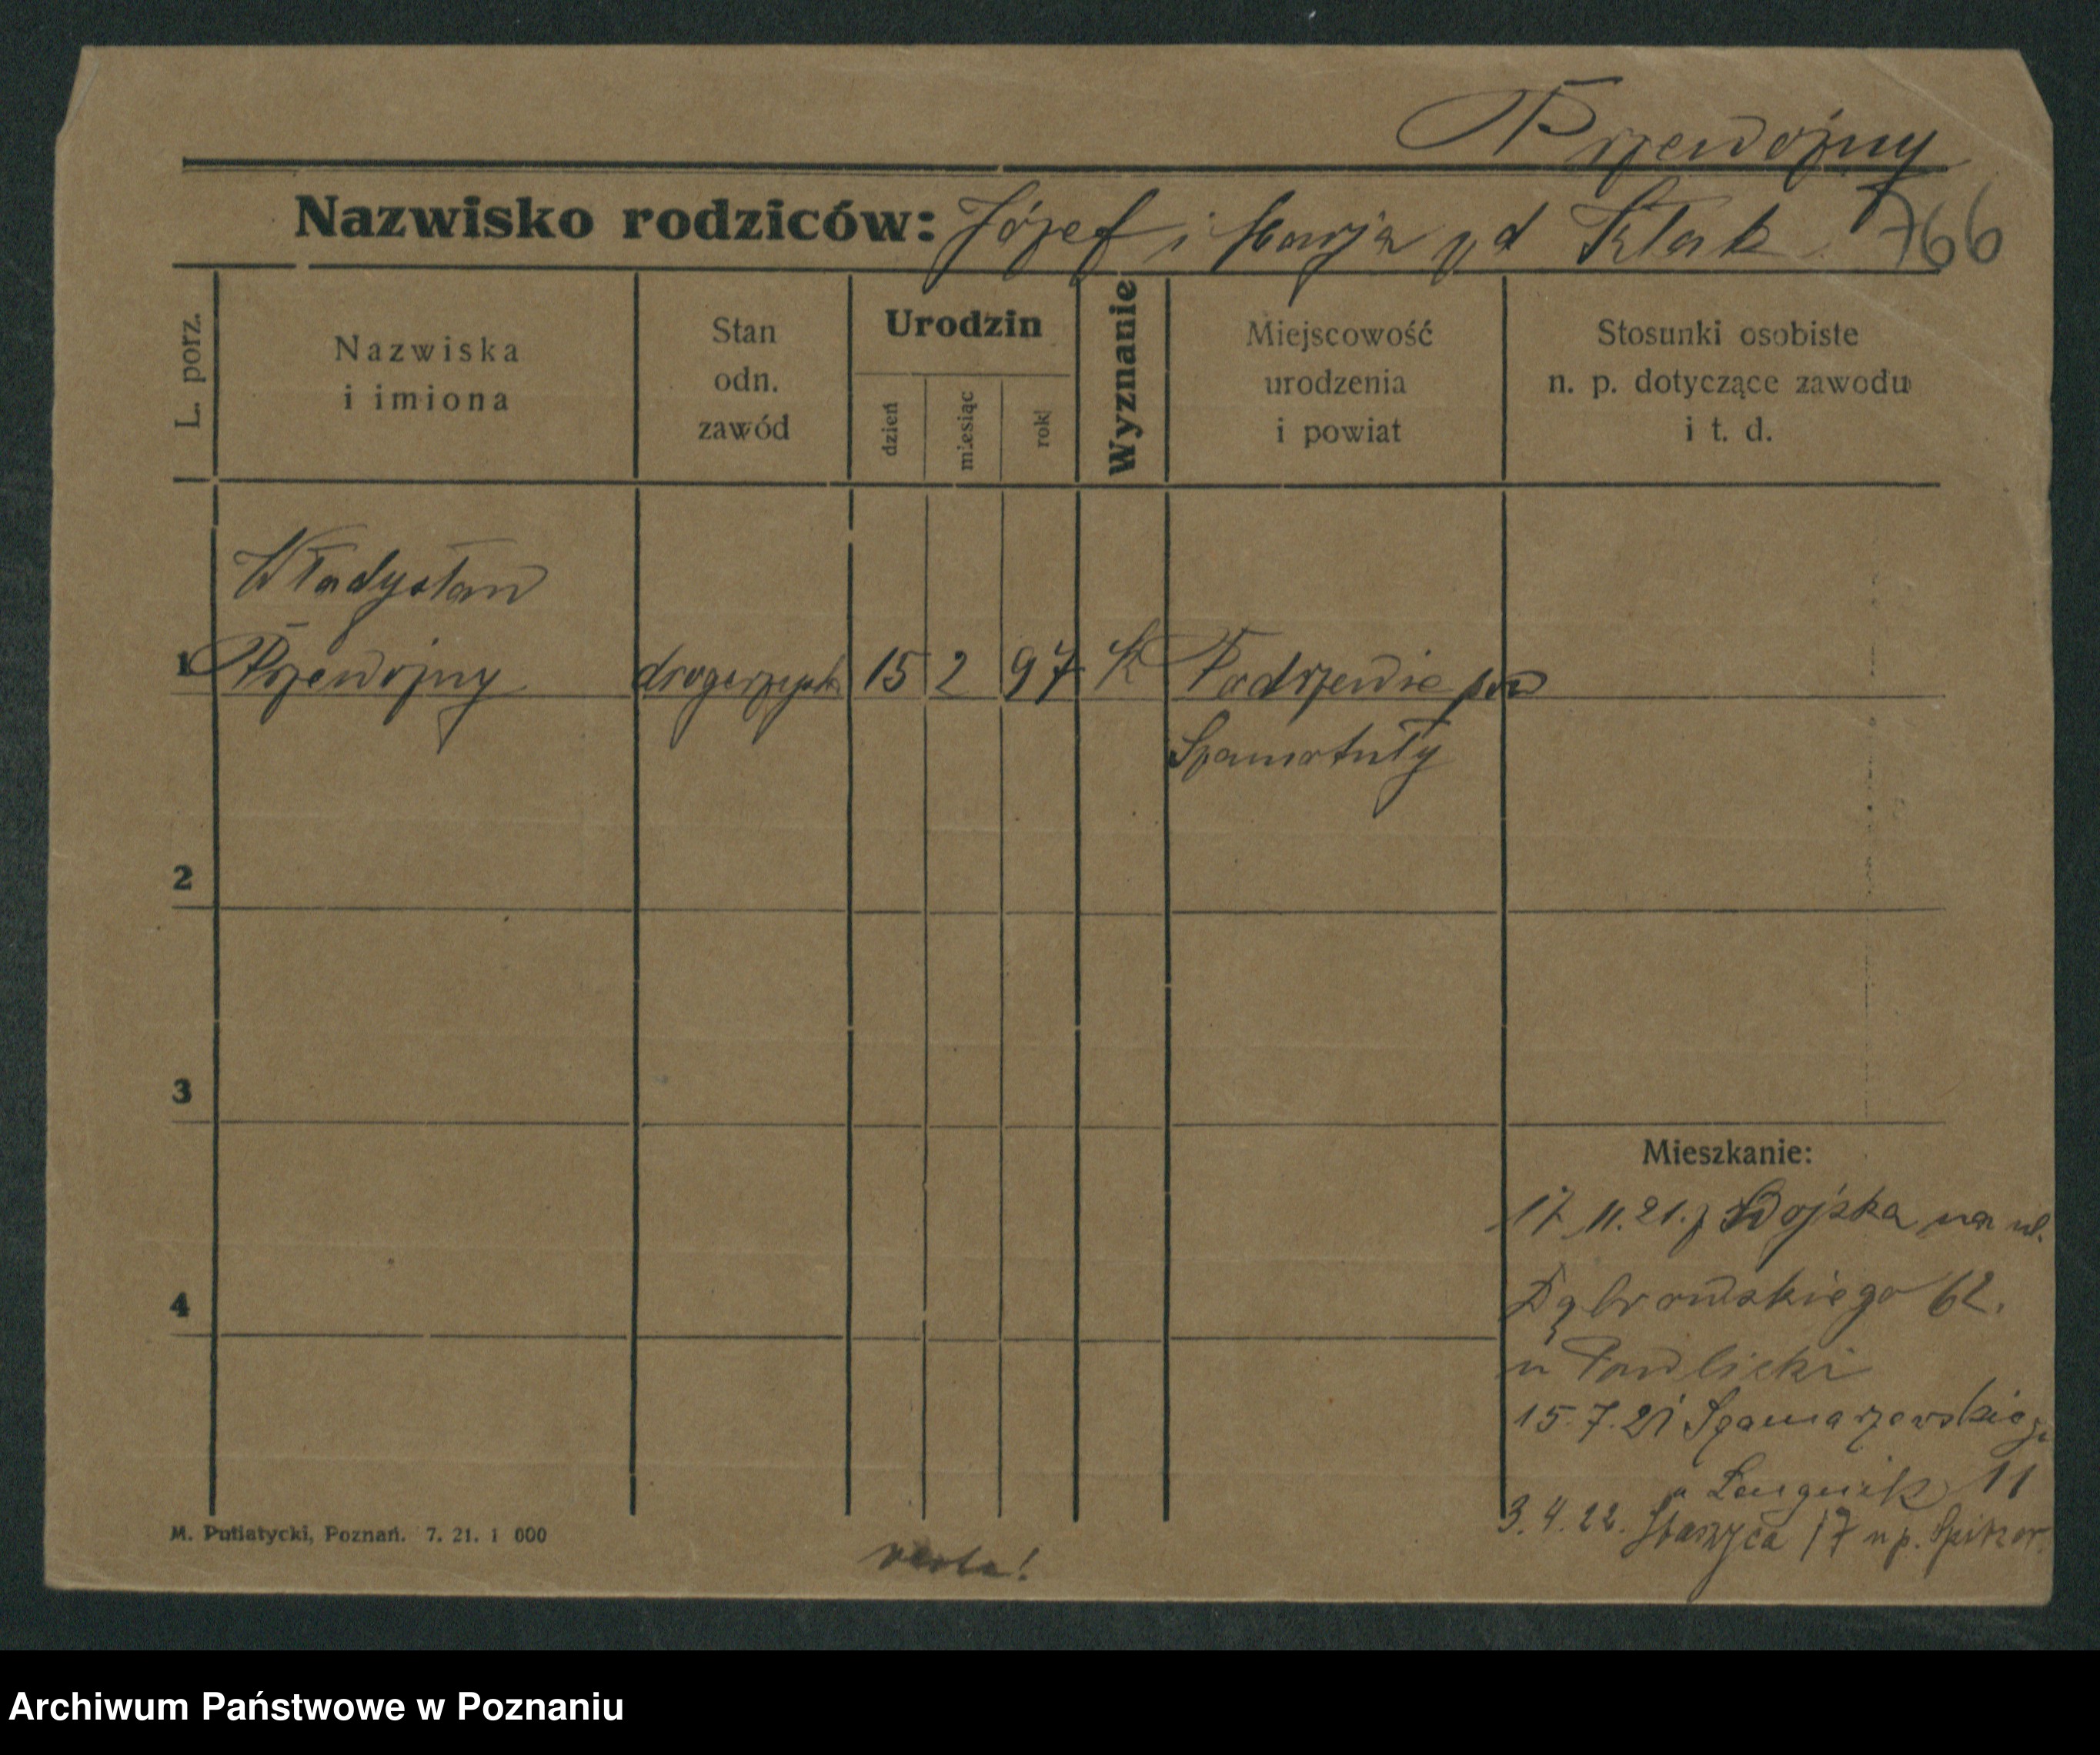 Przewojny
Nazwisko rodziców: Józef i Marja zd Kłak 766
L. porz.
Nazwiska
i imiona
Stan
odn.
zawód
Urodzin
dzień
miesiąc
rok
Wyznanie
Miejscowość
urodzenia
i powiat
Stosunki osobiste
n. p. dotyczące zawodu
i t. d.
Władysław
1 Przewojny drogerzysta 15 2 97 K Podrzewie pow
Szamotuły
2
3
4
Mieszkanie:
17 11.21. z Wojska na ul.
Dąbrowskiego 62.
u Pawlicki
15.7.21 Szamarzewskiego
u 11
3.4.22. Staszyca 17 u p. Spitzer.
M. Putiatycki, Poznań. 7. 21. 1 000
verte!
Archiwum Państwowe w Poznaniu